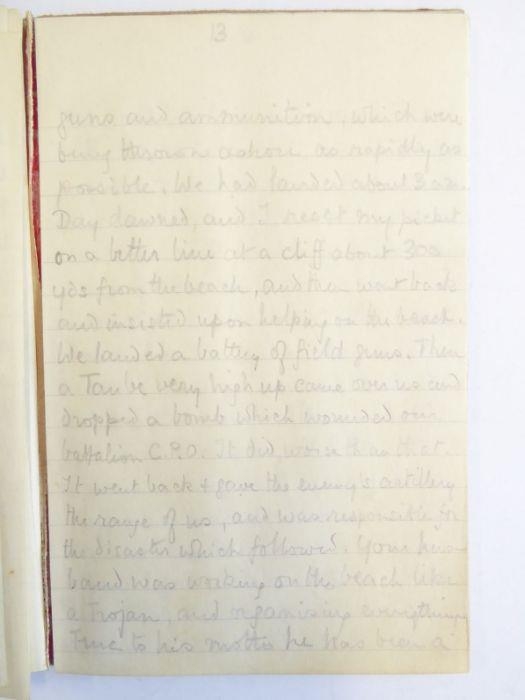 13
guns and ammunition, which were
being thrown ashore as rapidly as
possible. We had landed about 3 a.m.
Day dawned, and I reset my picket
on a better line at a cliff about 300
yds from the beach, and then went back
and insisted upon helping on the beach.
We landed a battery of field guns. Then
a Taube very high up came over us and
dropped a bomb which wounded our
battalion C.P.O. It did worse than that.
It went back & gave the enemy's artillery
the range of us, and was responsible for
the disaster which followed. Your hus-
band was working on the beach like
a Trojan, and organising everything.
True to his motto he has been a